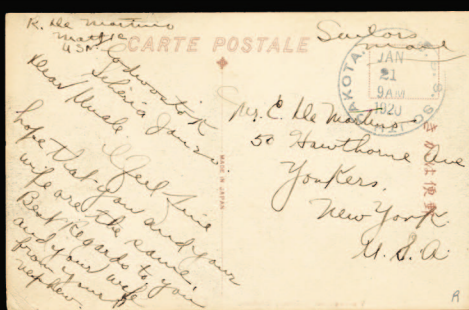 K. De Martino
USN
CARTE POSTALE
Sailors
Mail
U. S. S. SO. DAKOTA.
JAN
21
9AM
1920
Siberia Jan
Dear Uncle
I feel fine
hope that you and your
wife are the same.
Best Regards to you
and your wife
from your
nephew.
MADE IN JAPAN
Mr. E. De Martino
50 Hawthorne Ave
Yonkers.
New York
U. S. A.
きがは便郵
A